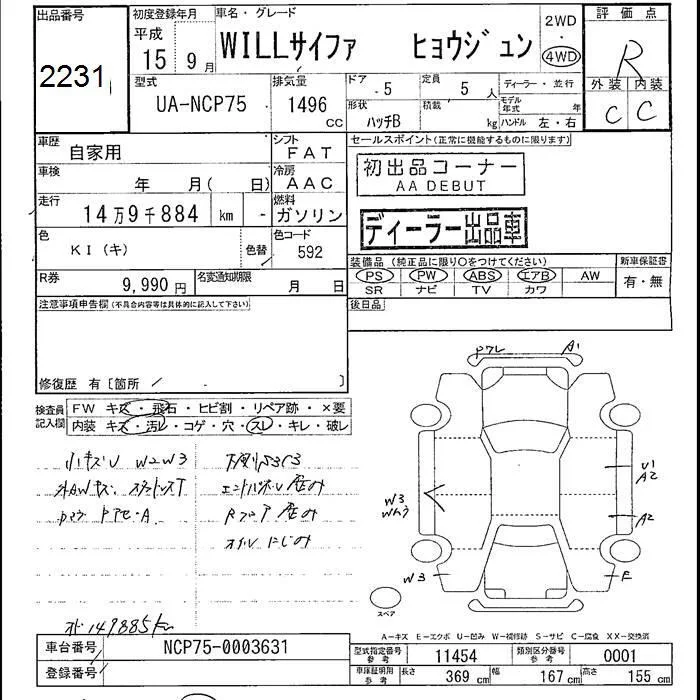 出品番号
2231
初度登録年月
平成
15年 9月
車名・グレード
WILLサイファ ヒョウジュン
2WD
・
4WD
評価点
R
外装 内装
C C
型式
UA-NCP75
排気量
1496
CC
ドア
- 5
定員
5人
形状
ハッチB
積載
kg
ディーラー・並行
モデル年式 年
ハンドル 左・右
車歴
自家用
シフト
FAT
車検
年 月( 日)
冷房
AAC
走行
14万9千884 km -
燃料
ガソリン
色
KI(キ)
色替
色コード
592
R券
9,990円
名変通知期限
月 日
セールスポイント(正常に機能するものに限ります)
初出品コーナー
AA DEBUT
ディーラー出品車
装備品(純正品に限り○をつけてください)
PS PW ABS エアB AW
SR ナビ TV カワ
新車保証書
有・無
後日品
注意事項申告欄(不具合内容等は具体的に記入して下さい)
修復歴 有〔箇所 / 〕
検査員記入欄
FW キズ・飛石・ヒビ割・リペア跡・×要
内装 キズ・汚レ・コゲ・穴・スレ・キレ・破レ
小キズU W2W3
エンドパネル 歪み
Rフロア 歪み
オイルにじみ
149885km
A1
U1
A2
A2
W3
W3
E
スペア
A-キズ E-エクボ U-凹み W-補修跡 S-サビ C-腐食 XX-交換済
車台番号
NCP75-0003631
登録番号
型式指定番号参考
11454
類別区分番号参考
0001
車庫証明用参考
長さ 369cm 幅 167cm 高さ 155cm